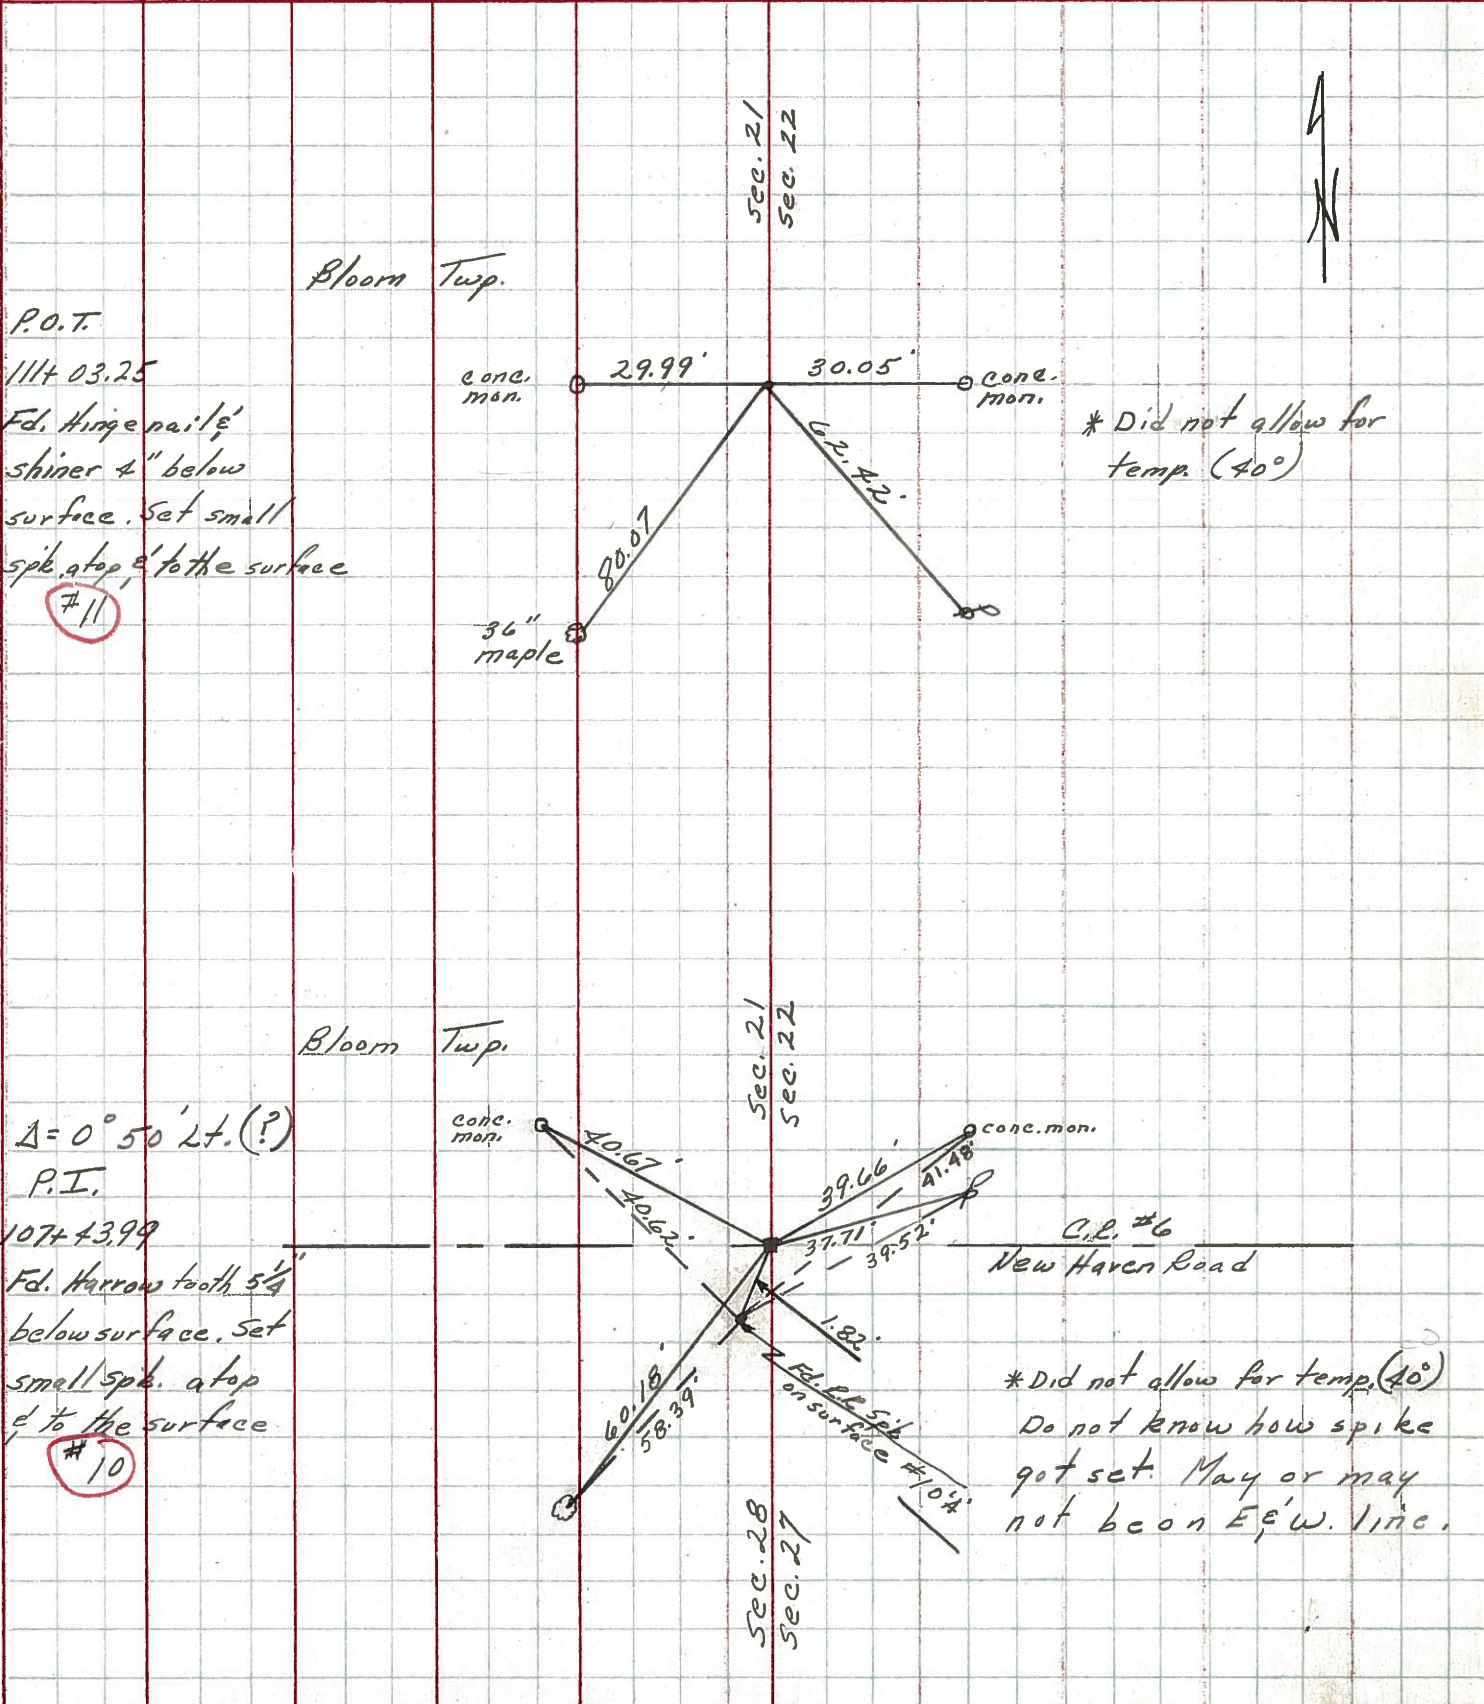 Sec. 21
Sec. 22
N
Bloom Twp.
P.O.T.
111+03.25
Fd. Hinge nail &
shiner 4" below
surface. Set small
spk. atop & to the surface
#11
conc.
mon.
29.99'
30.05'
conc.
mon.
62.42'
80.07
36"
maple
* Did not allow for
temp. (40°)
Sec. 21
Sec. 22
Bloom Twp.
Δ= 0° 50' Lt. (?)
P.I.
107+43.99
Fd. Harrow tooth 5¼"
below surface. Set
small spk. atop
& to the surface
#10
conc.
mon.
40.67'
40.62'
39.66'
41.48'
conc. mon.
37.71'
39.52'
C.R. #6
New Haven Road
1.82'
60.18'
58.39'
Fd. R.R. Spk
on surface #10
* Did not allow for temp. (40°)
Do not know how spike
got set. May or may
not be on E & W. line.
Sec. 28
Sec. 27